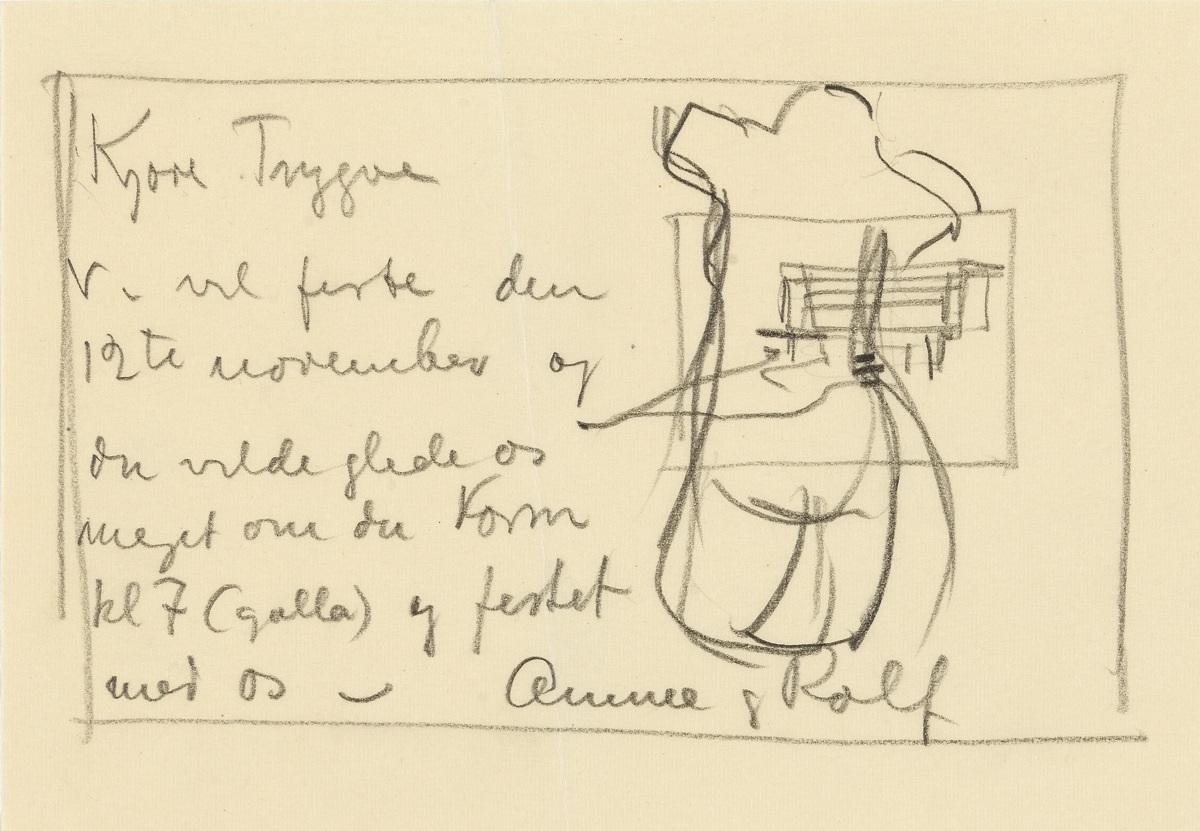 Kjære Trygve
Vi vil feste den
12te november og
du vilde glede os
meget om du kom
kl 7 (galla) og festet
med os
Aimée & Rolf